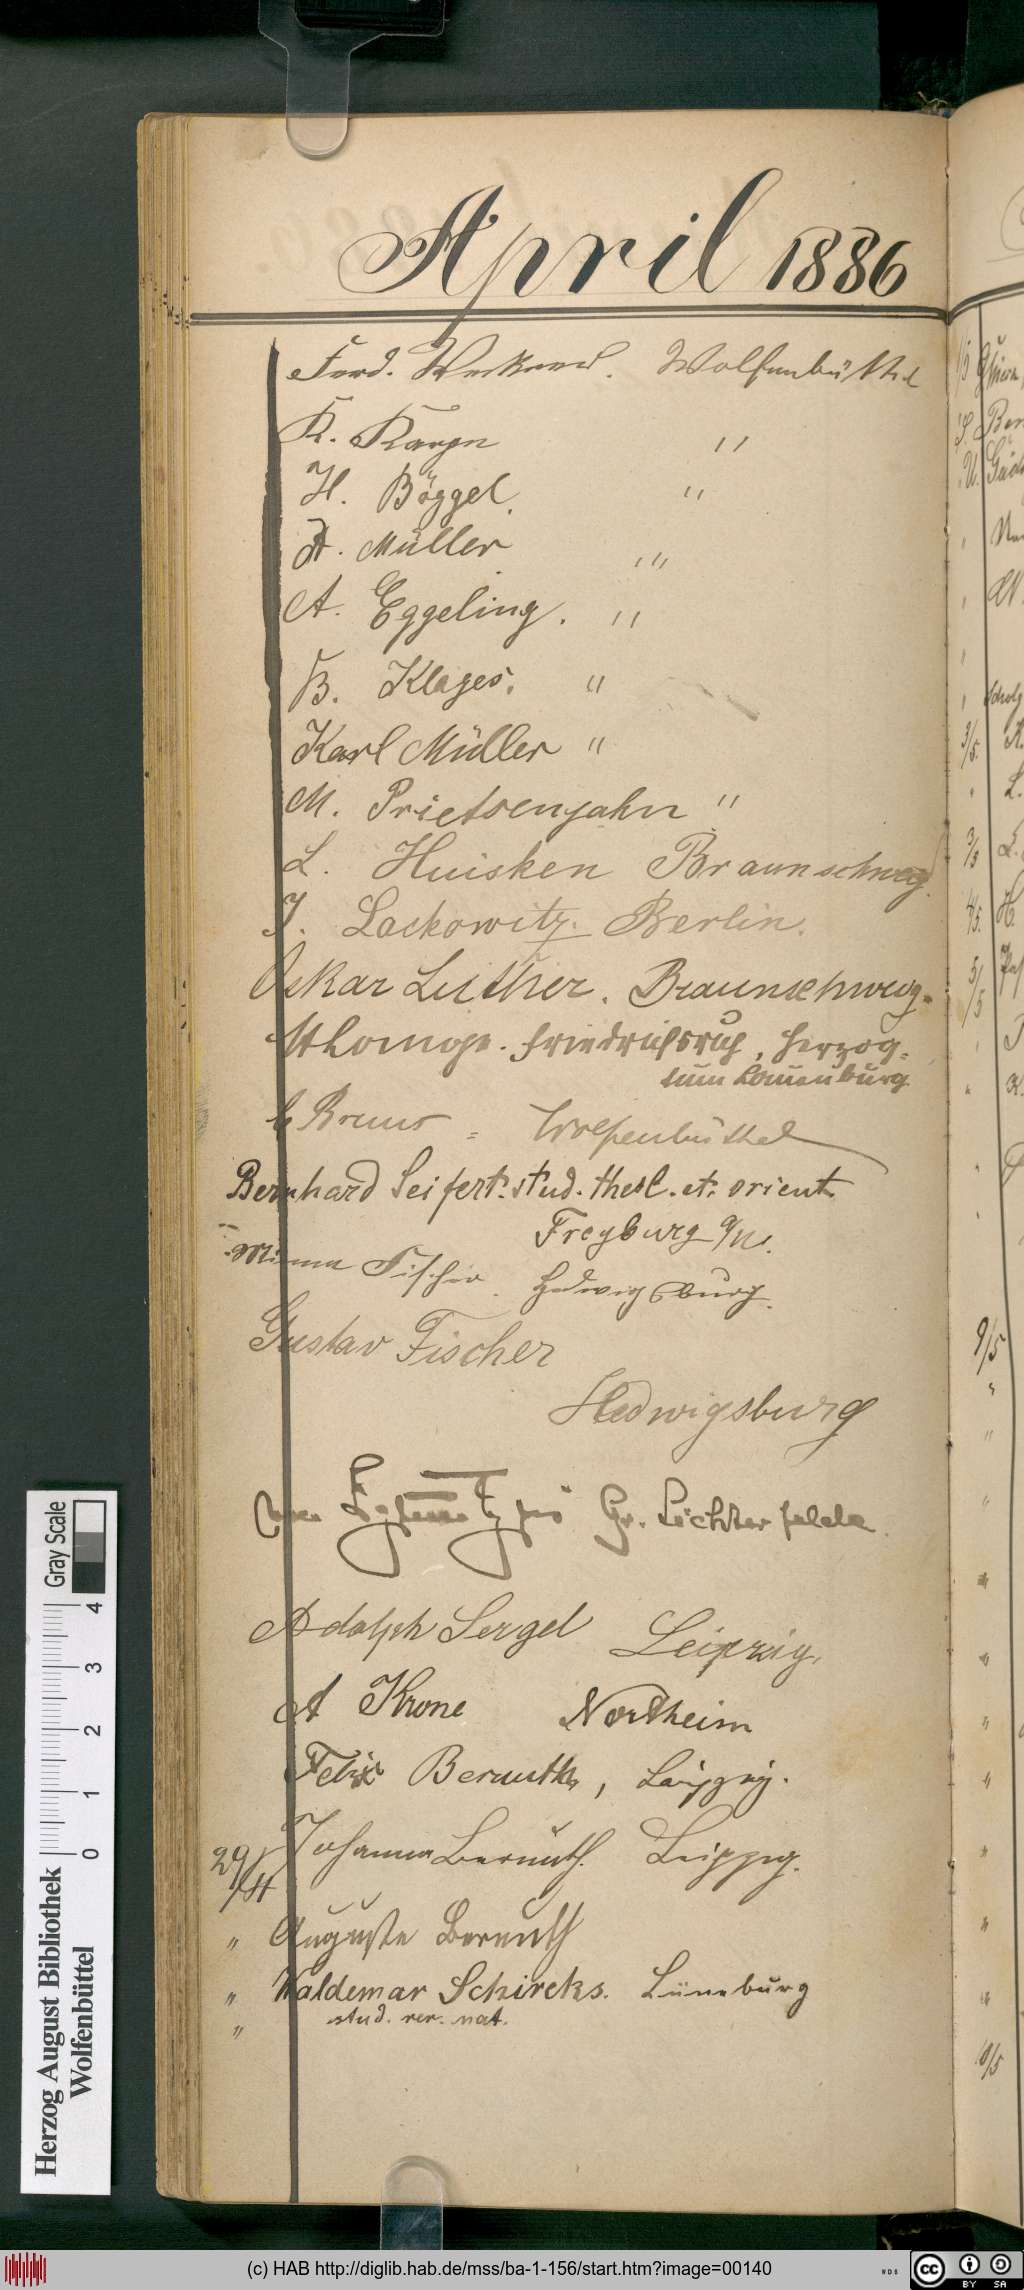 April 1886
Ferd. Wolfenbüttel
K. Kargen "
H. Böggel. "
A. Müller "
A. Eggeling. "
B. Klages. "
Karl Müller "
M. Prietsenjahn "
L. Huisken Braunschweig.
J. Lackowitz. Berlin.
Oskar Luther. Braunschweig.
Friedrichsruh, Herzog-
tum Lauenburg
C Bruns = Wolfenbüttel
Bernhard Seifert. stud. theol. et. orient.
Freyburg a/U.
Minna Fischer. Hedwigsburg.
Gustav Fischer
Hedwigsburg
von Gr. Lichterfelde.
Adolph Sergel Leipzig.
A Krone Northeim
Felix Bernuth, Leipzig.
29/4 Johanna Bernuth. Leipzig.
" Auguste Bernuth
" Waldemar Schircks. Lüneburg
" stud. rer. nat.
Herzog August Bibliothek
Wolfenbüttel
0 1 2 3 4 Gray Scale
(c) HAB http://diglib.hab.de/mss/ba-1-156/start.htm?image=00140
cc BY SA